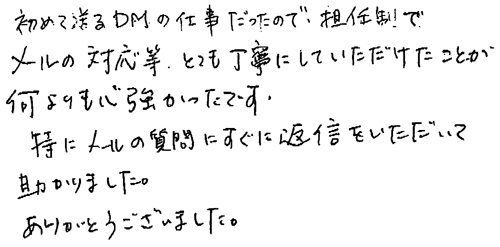 初めて送るDMの仕事だったので、担任制で
メールの対応等、とても丁寧にしていただけたことが
何よりも心強かったです。
特にメールの質問にすぐに返信をいただいて
助かりました。
ありがとうございました。